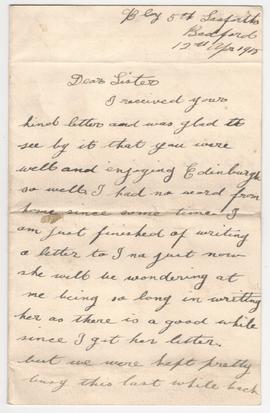 B Coy 5th Seaforths
Bedford
12th Apr 1915
Dear Sister
I received your
kind letter and was glad to
see by it that you were
well and enjoying Edinburgh
so well. I had no word from
home since some time. I
am just finished of writing
a letter to Ina just now
she will be wondering at
me being so long in writting
her as there is a good while
since I got her letter.
but we were kept pretty
busy this last while back